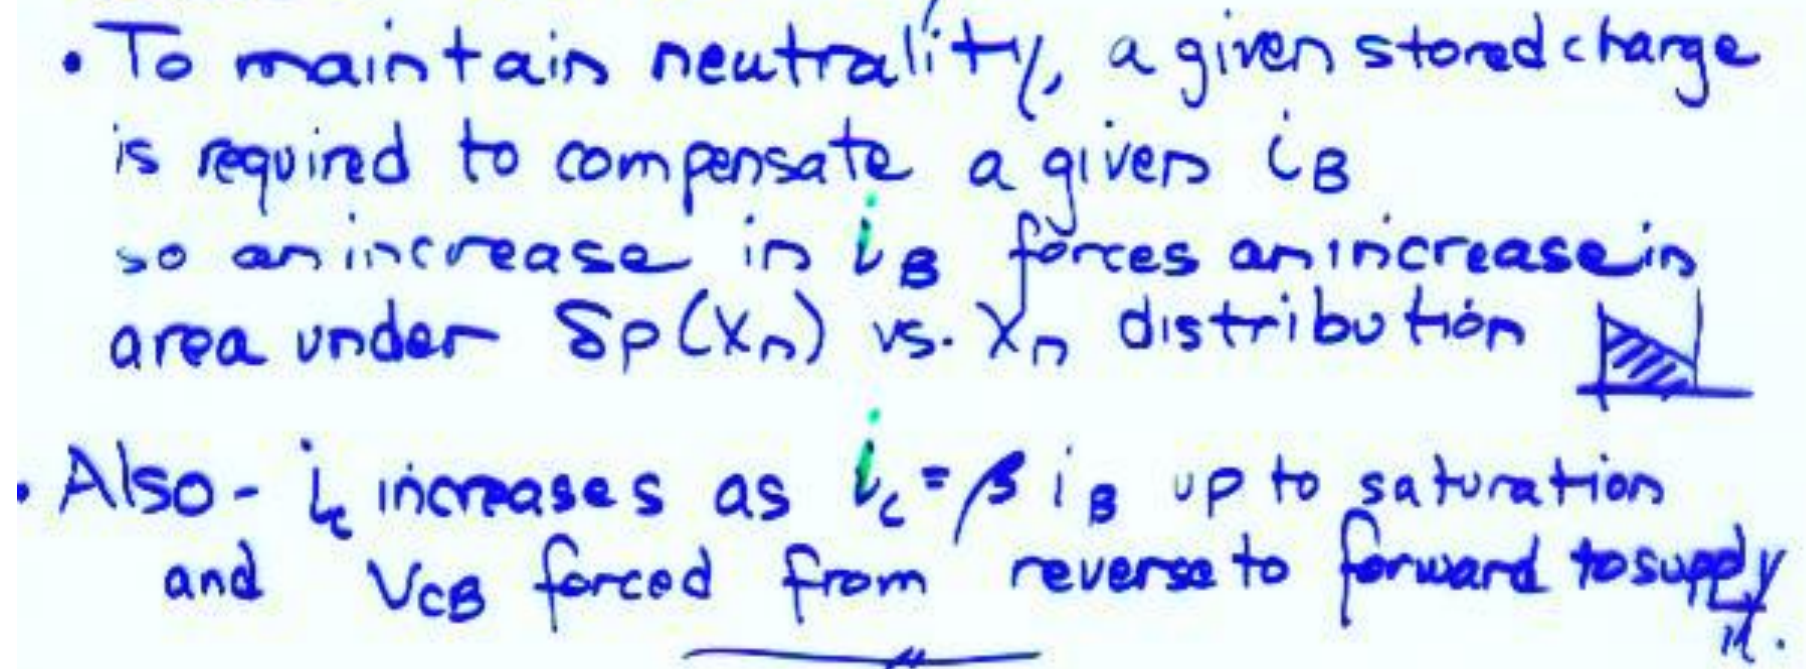 • To maintain neutrality, a given stored charge
is required to compensate a given iB
so an increase in iB forces an increase in
area under δp(xn) vs. xn distribution
• Also - ic increases as ic = β iB up to saturation
and VCB forced from reverse to forward to supply
it.